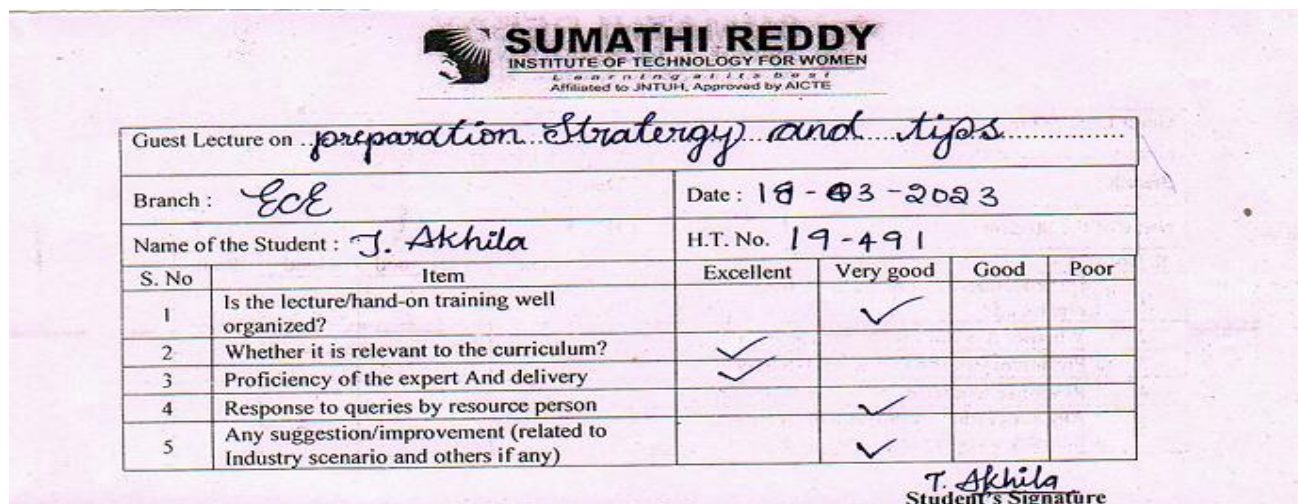 SUMATHI REDDY
INSTITUTE OF TECHNOLOGY FOR WOMEN
Learning at its best
Affiliated to JNTUH, Approved by AICTE
Guest Lecture on preparation Stratergy and tips
Branch : ECE Date : 18-03-2023
Name of the Student : T. Akhila H.T. No. 19-491
S. No Item Excellent Very good Good Poor
1 Is the lecture/hand-on training well
organized? ✓
2 Whether it is relevant to the curriculum? ✓
3 Proficiency of the expert And delivery ✓
4 Response to queries by resource person ✓
5 Any suggestion/improvement (related to
Industry scenario and others if any) ✓
T. Akhila
Student's Signature